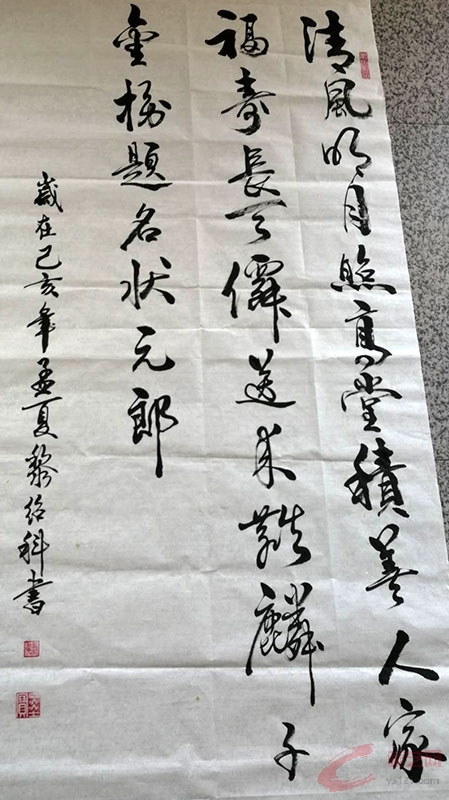 清風明月照高堂積善人家
福壽長天僊送来麒麟子
金榜題名状元郎
歲在己亥年孟夏黎紹科書